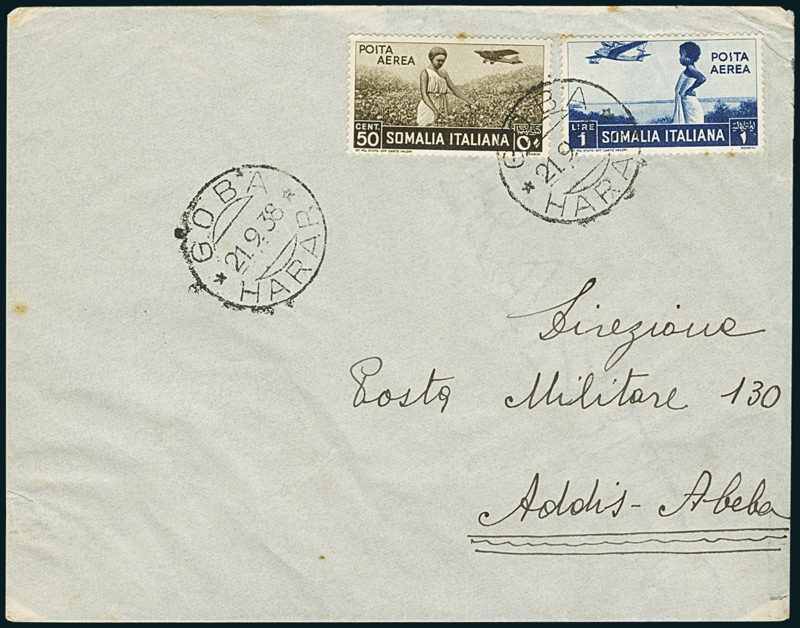 POSTA
AEREA
CENT.
50
SOMALIA ITALIANA
POSTA
AEREA
LIRE
1
SOMALIA ITALIANA
GOBA
21.9
HARA
GOBA
21.9.38
HARAR
Direzione
Posta Militare 130
Addis-Abeba